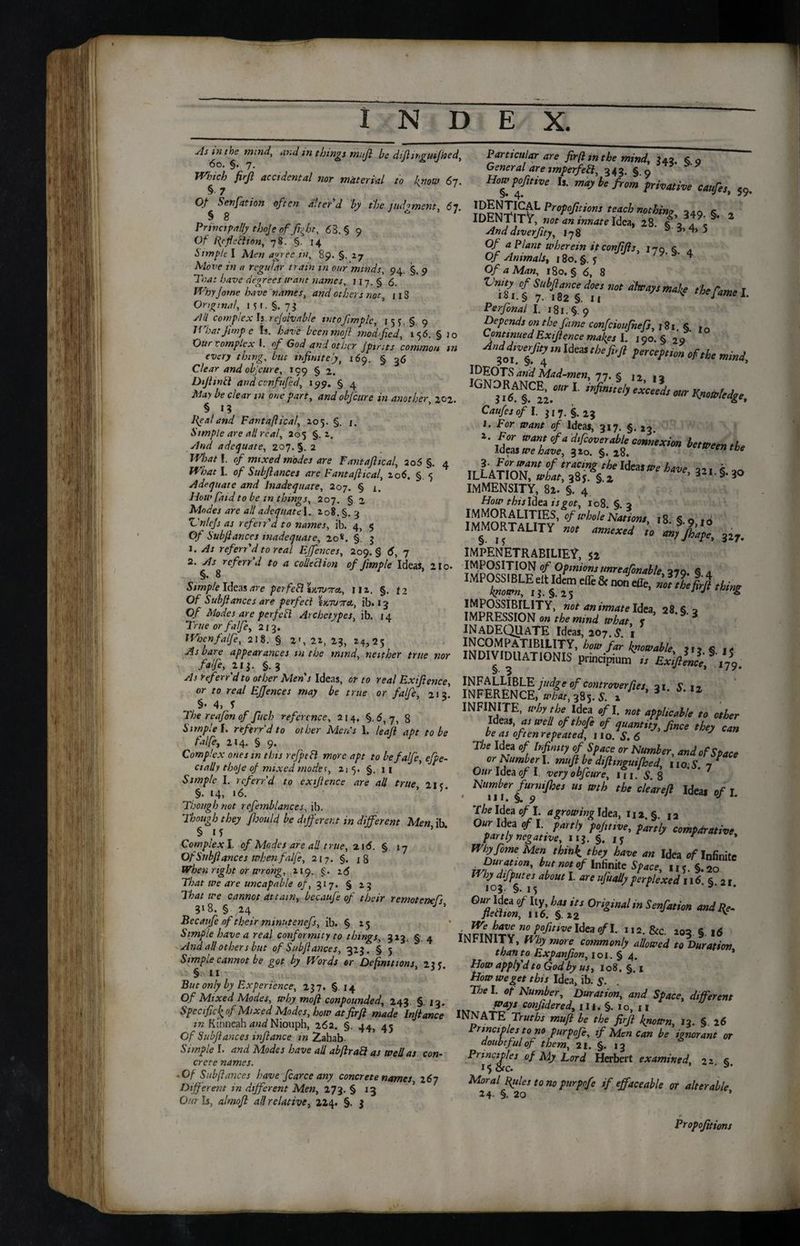 INDEX.
As in the mind, and in things must be distinguished,
60. §. 7.
Which first accidental nor material to know 67.
§. 7
Of Sensation often alter'd by the judgment, 67.
§ 8
Principally those of sight, 68. § 9
Of Reflection, 78. §. 14
Simple I Men agree in, 89. §. 27
Move in a regular train in our minds, 94. §. 9
That have degrees want names, 117. § 6.
Why some have names, and others not, 118
Original, 151. §. 73
All complex Is. resolvable into simple, 155. §. 9
What simple Is. have been most modified, 156. § 10
Our complex I. of God and other spirits common in
every thing, but infinitely, 169. § 36
Clear and obscure, 199 § 2.
Distinct and confused, 199. § 4
May be clear in one part, and obscure in another, 202.
§ 13
Real and Fantastical, 205. §. 1.
Simple are all real, 205 §. 2.
And adequate, 207. §. 2
What I. of mixed modes are Fantastical, 206 §. 4
What I. of Substances are Fantastical, 206. §. 5
Adequate and Inadequate, 207. § 1.
How said to be in things, 207. § 2
Modes are all adequate I. 208. §. 3
Unless as referr'd to names, ib. 4, 5
Of Substances inadequate, 208. §. 3
1. As referr'd to real Essences, 209. § 6, 7
2. As referr'd to a collection of simple Ideas, 210.
§. 8
Simple Ideas are perfect ἔκτυπα, 112. §. 12
Of Substances are perfect ἔκτυπα, ib. 13
Of Modes are perfect Archetypes, ib. 14
True or false, 213.
When false, 218. § 21, 22, 23, 24, 25
As bare appearances in the mind, neither true nor
false, 213. §. 3
As referr'd to other Men's Ideas, or to real Existence,
or to real Essences may be true or false, 213.
§. 4, 5
The reason of such reference, 214. §. 6, 7, 8
Simple I. referr'd to other Men's I. least apt to be
false, 214. § 9.
Complex ones in this respect more apt to be false, espe-
cially those of mixed modes, 215. §. 11
Simple I. referr'd to existence are all true, 215.
§. 14, 16.
Though not resemblances, ib.
Though they should be different in different Men, ib.
§ 15
Complex I. of Modes are all true, 216. § 17
Of Substances when false, 217. §. 18
When right or wrong, 219. §. 26
That we are uncapable of, 317. § 23
That we cannot attain, because of their remoteness,
318. §. 24
Because of their minuteness, ib. § 25
Simple have a real conformity to things, 323. §. 4
And all others but of Substances, 323. § 5
Simple cannot be got by Words or Definitions, 235.
§ 11
But only by Experience, 237. §. 14
Of Mixed Modes, why most compounded, 243 § 13.
Specifick of Mixed Modes, how at first made Instance
in Kinneah and Niouph, 262. §. 44, 45
Of Substances instance in Zahab.
Simple I. and Modes have all abstract as well as con-
crete names.
Of Substances have scarce any concrete names, 267
Different in different Men, 273. § 13
Our Is, almost all relative, 224. §. 3
Particular are first in the mind, 343. §. 9
General are imperfect, 343. §. 9
How positive Is. may be from privative causes, 59.
§. 4.
IDENTICAL Propositions teach nothing, 349. §. 2
IDENTITY, not an innate Idea, 28. § 3, 4, 5
And diversity, 178
Of a Plant wherein it consists, 179. §. 4
Of Animals, 180. §. 5
Of a Man, 180. § 6, 8
Unity of Substance does not always make the same I.
181. § 7. 182 §. 11
Personal I. 181. §. 9
Depends on the same consciousness, 181. §. 10
Continued Existence makes I. 190. § 29
And diversity in Ideas the first perception of the mind,
301. §. 4
IDEOTS and Mad-men, 77. § 12, 13
IGNORANCE, our I. infinitely exceeds our Knowledge,
316. §. 22.
Causes of I. 317. §. 23
1. For want of Ideas, 317. §. 23.
2. For want of a discoverable connexion between the
Ideas we have, 320. §. 28.
3. For want of tracing the Ideas we have, 321. §. 30
ILLATION, what, 385. §. 2
IMMENSITY, 82. §. 4
How this Idea is got, 108. §. 3
IMMORALITIES, of whole Nations, 18. §. 9, 10
IMMORTALITY not annexed to any shape, 327.
§. 15
IMPENETRABILIEY, 52
IMPOSITION of Opinions unreasonable, 379. §. 4
IMPOSSIBLE est Idem esse & non esse, not the first thing
known, 13. §. 25
IMPOSSIBILITY, not an innate Idea, 28. §. 3
IMPRESSION on the mind what, 5
INADEQUATE Ideas, 207. §. 1
INCOMPATIBILITY, how far knowable, 313. §. 15
INDIVIDUATIONIS principium is Existence, 179.
§. 3
INFALLIBLE judge of controversies, 31. §. 12
INFERENCE, what, 385. §. 2
INFINITE, why the Idea of I. not applicable to other
Ideas, as well of those of quantity, since they can
be as often repeated, 110. §. 6
The Idea of Infinity of Space or Number, and of Space
or Number I. must be distinguished, 110. §. 7
Our Idea of I. very obscure, 111. §. 8
Number furnishes us with the clearest Ideas of I.
111. §. 9
The Idea of I. a growing Idea, 112. §. 12
Our Idea of I. partly positive, partly comparative,
partly negative, 113. §. 15
Why some Men think they have an Idea of Infinite
Duration, but not of Infinite Space, 115. §. 20
Why disputes about I. are usually perplexed 116. §. 21.
103. §. 15
Our Idea of Ity, has its Original in Sensation and Re-
flection, 116. §. 22
We have no positive Idea of I. 112. &c. 203 §. 16
INFINITY, Why more commonly allowed to Duration,
than to Expansion, 101. § 4.
How apply'd to God by us, 108. §. 1
How we get this Idea, ib. §.
The I. of Number, Duration, and Space, different
ways considered, 111. §. 10, 11
INNATE Truths must be the first known, 13. §. 26
Principles to no purpose, if Men can be ignorant or
doubtful of them, 21. §. 13
Principles of My Lord Herbert examined, 22. §.
15 &c.
Moral Rules to no purpose if effaceable or alterable,
24. §. 20
Propositions